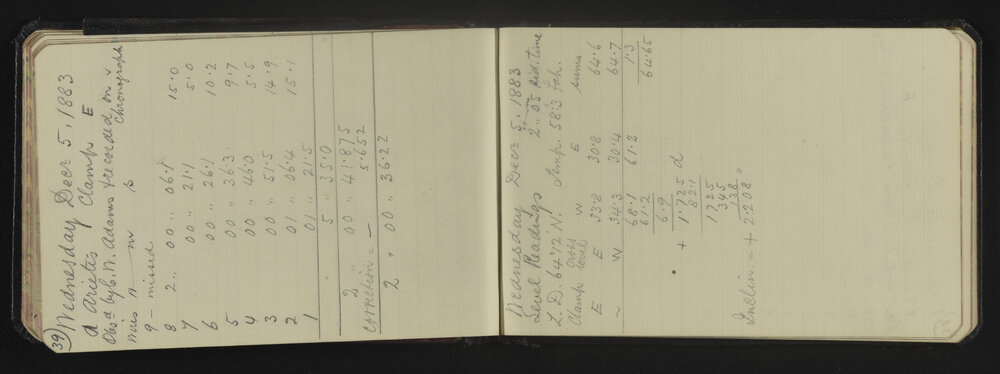 39
Wednesday Decr 5, 1883
α Arietis Clamp E
Obsd by C. W. Adams & recorded on
Chronograph
Wires H m s
9 - missed
8 2 .. 00 .. 06.1 15.0
7 00 " 21.1 5.0
6 00 " 26.1 10.2
5 00 " 36.3 9.7
4 00 " 46.0 5.5
3 00 " 51.5 14.9
2 01 " 06.4 15.1
1 01 " 21.5
5 " 35.0
2 " 00 " 41.875
correction = — 5.652
2 " 00 " 36.22
Wednesday Decr 5, 1883
Level Readings 2h .. 05m Sid. time
L. D. 64°12' N. Temp. 58.3 Fah.
Clamp Cross level W E sums
E E 33.8 30.8 64.6
~ W 34.3 30.4 64.7
68.1 61.2 1.3
61.2 64.65
6.9
+ 1.725 d
1725
345
138
Inclin = + 2.208 "